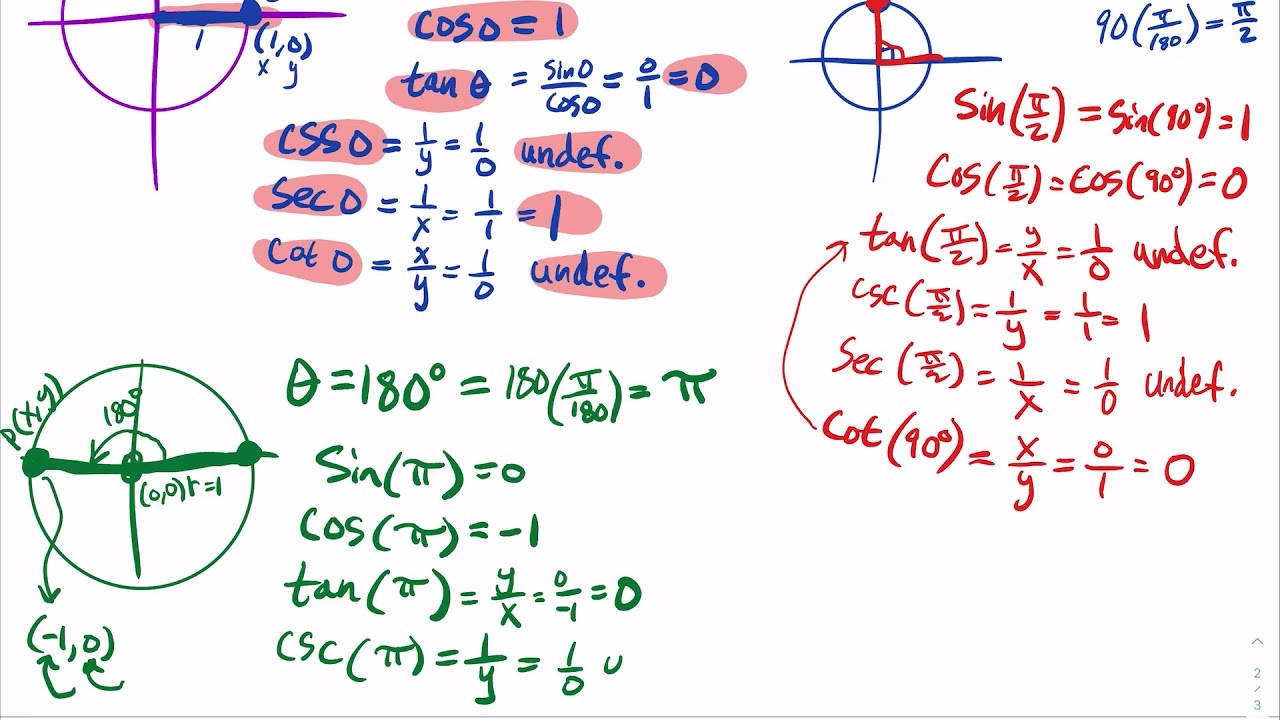 1
(1,0)
x y
cos 0 = 1
tan θ = sin0/cos0 = 0/1 = 0
csc 0 = 1/y = 1/0 undef.
Sec 0 = 1/x = 1/1 = 1
Cot 0 = x/y = 1/0 undef.
90(π/180) = π/2
Sin(π/2) = Sin(90°) = 1
Cos(π/2) = Cos(90°) = 0
tan(π/2) = y/x = 1/0 undef.
csc(π/2) = 1/y = 1/1 = 1
Sec(π/2) = 1/x = 1/0 undef.
Cot(90°) = x/y = 0/1 = 0
P(x,y)
180°
(0,0) r=1
(-1,0)
θ = 180° = 180(π/180) = π
Sin(π) = 0
Cos(π) = -1
tan(π) = y/x = 0/-1 = 0
csc(π) = 1/y = 1/0 u
2
/
3